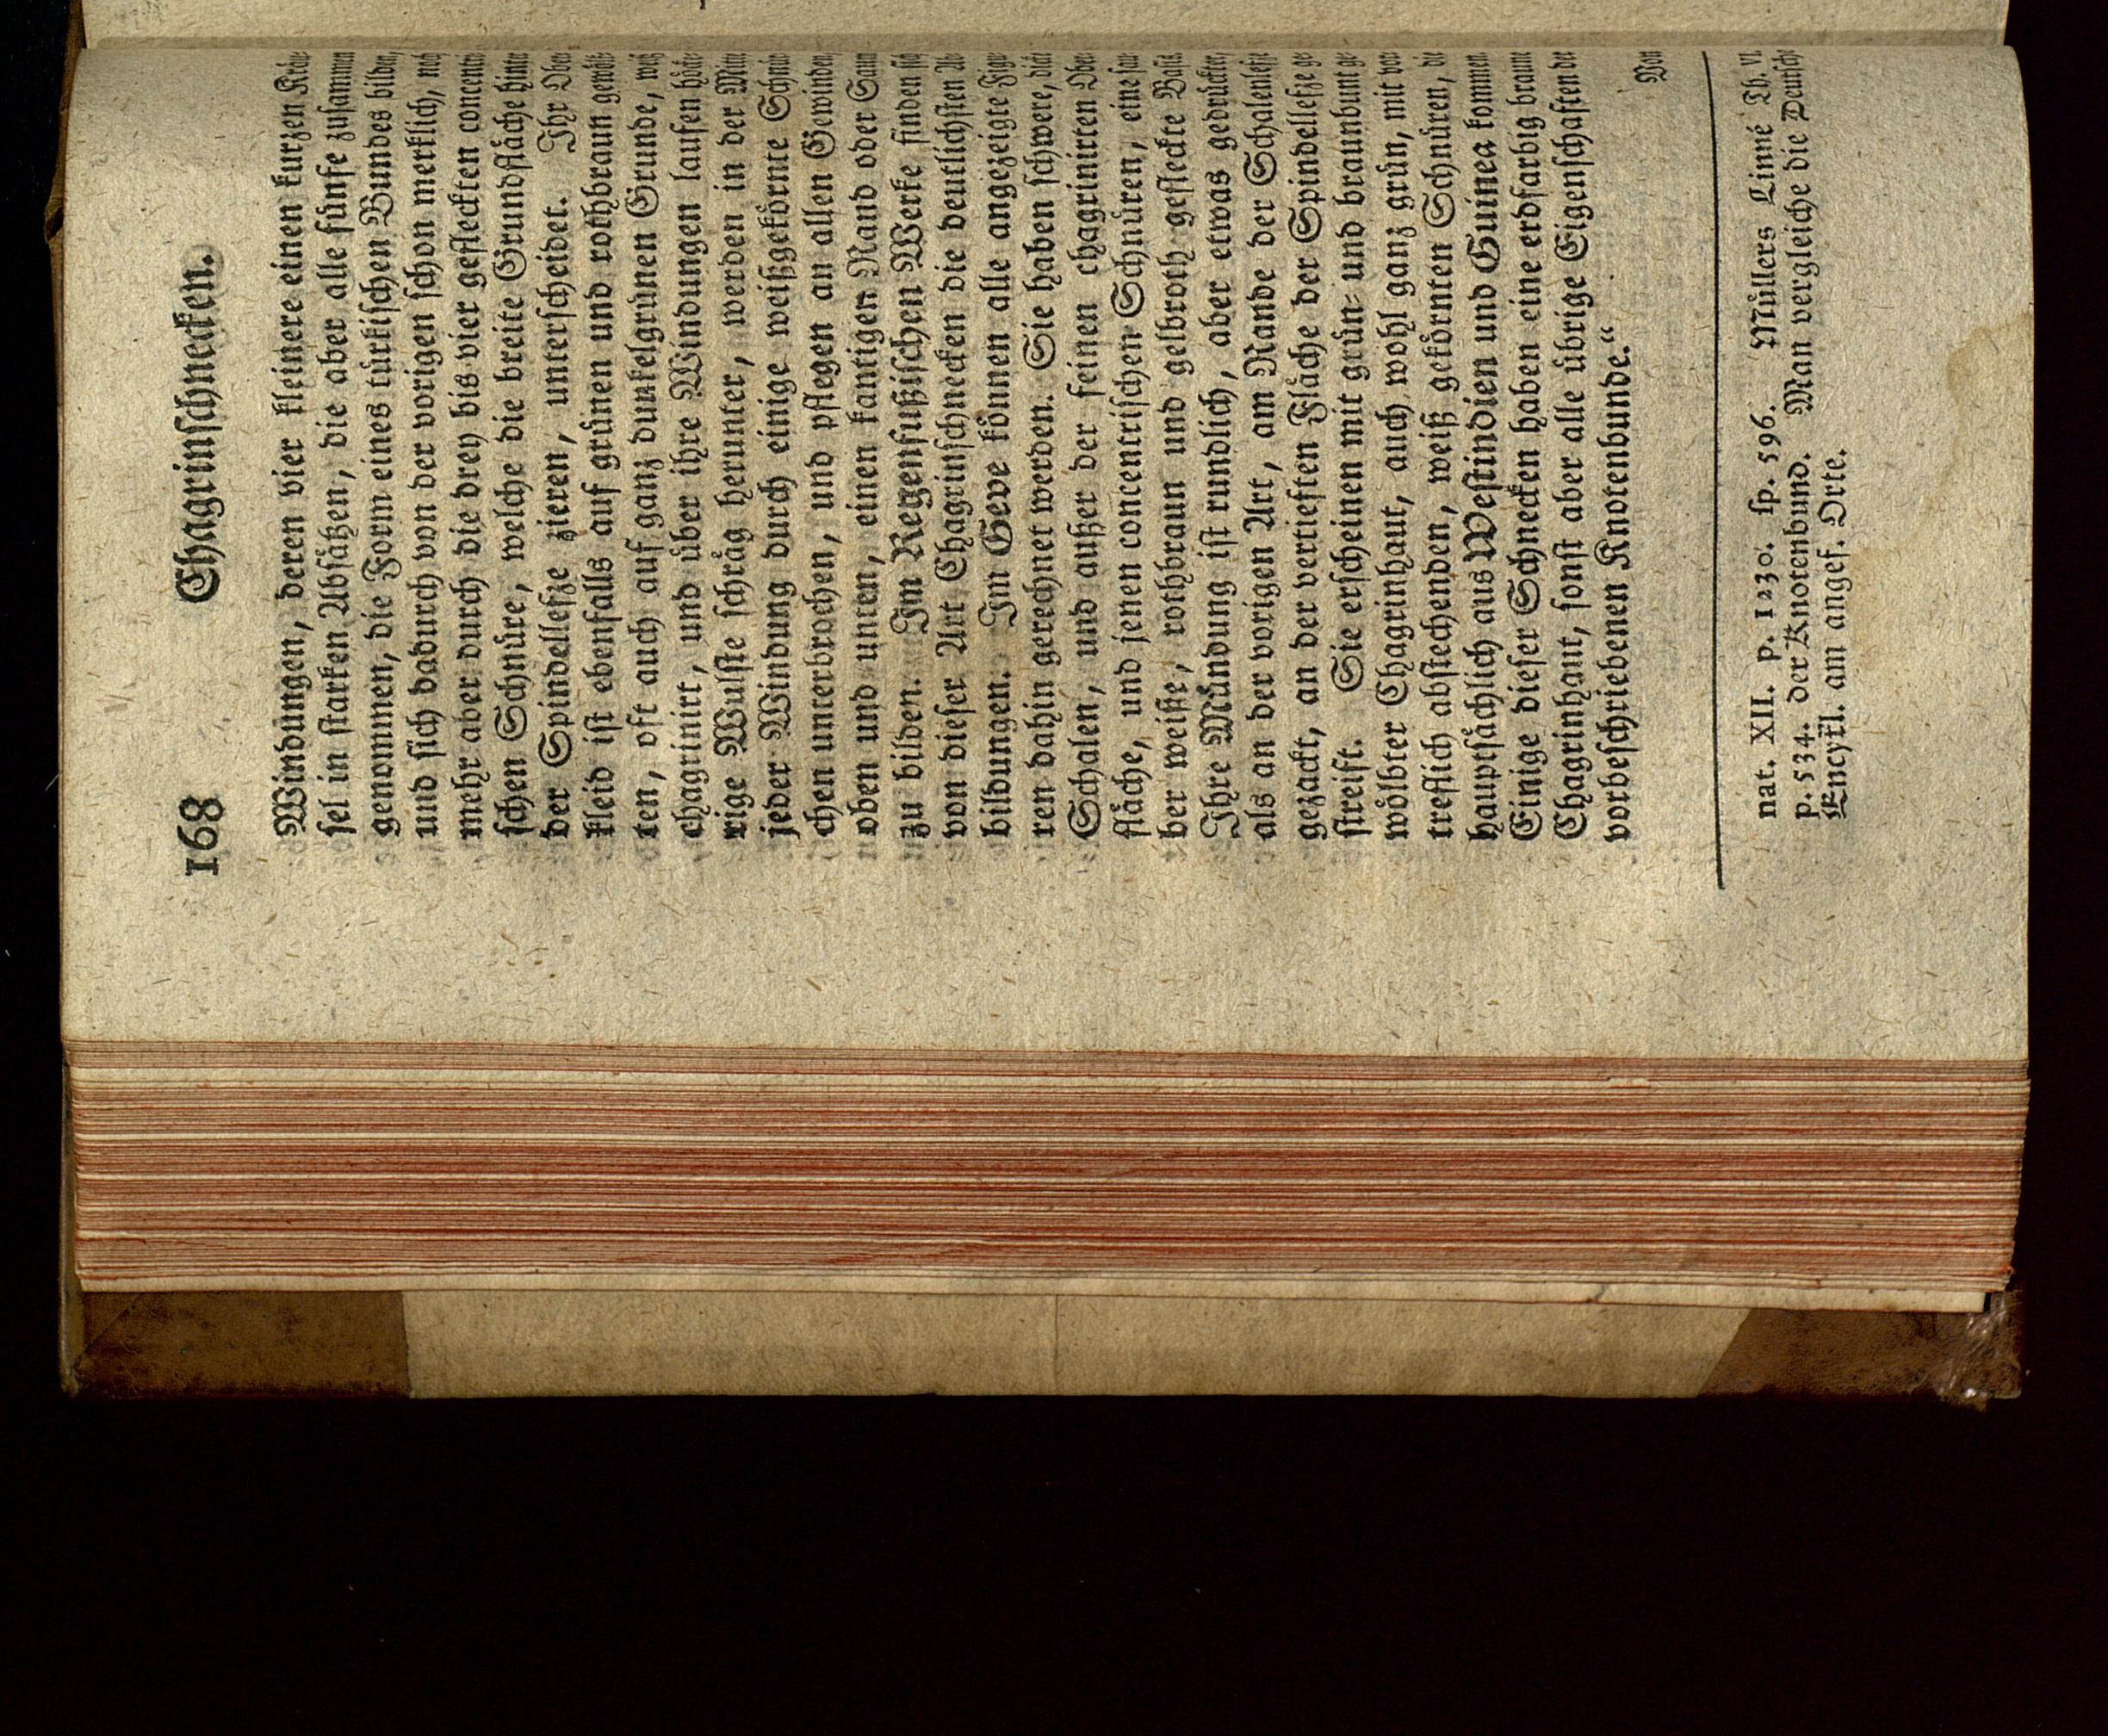 168 Chagrinschnecken.
Windungen, deren vier kleinere einen kurzen Kräu-
sel in starken Absätzen, die aber alle fünfe zusammen
genommen, die Form eines türkischen Bundes bilden,
und sich dadurch von der vorigen schon merklich, noch
mehr aber durch die drey bis vier gefleckten concentri-
schen Schnüre, welche die breite Grundfläche hinter
der Spindellefze zieren, unterscheidet. Ihr Ober-
kleid ist ebenfalls auf grünen und rothbraun gewölk-
ten, oft auch auf ganz dunkelgrünen Grunde, weiß
chagrinirt, und über ihre Windungen laufen höke-
rige Wulste schräg herunter, werden in der Mitte
jeder Windung durch einige weißgekörnte Schnür-
chen unterbrochen, und pflegen an allen Gewinden,
oben und unten, einen kantigen Rand oder Saum
zu bilden. Im Regenfußischen Werke finden sich
von dieser Art Chagrinschnecken die deutlichsten Ab-
bildungen. Im Geve können alle angezeigte Figu-
ren dahin gerechnet werden. Sie haben schwere, dicke
Schalen, und außer der feinen chagrinirten Ober-
fläche, und jenen concentrischen Schnüren, eine sau-
ber weiße, rothbraun und gelbroth gefleckte Basis.
Ihre Mündung ist rundlich, aber etwas gedruckter,
als an der vorigen Art, am Rande der Schalenlefze
gezackt, an der vertieften Fläche der Spindellefze ge-
streift. Sie erscheinen mit grün- und braunbunt ge-
wölbter Chagrinhaut, auch wohl ganz grün, mit vor-
treflich abstechenden, weiß gekörnten Schnüren, die
hauptsächlich aus Westindien und Guinea kommen.
Einige dieser Schnecken haben eine erdfarbig braune
Chagrinhaut, sonst aber alle übrige Eigenschaften der
vorbeschriebenen Knotenbunde.“
Von
nat. XII. p. 1230. sp. 596. Müllers Linné Th. VI.
p. 534. der Knotenbund. Man vergleiche die Deutsche
Encykl. am angef. Orte.